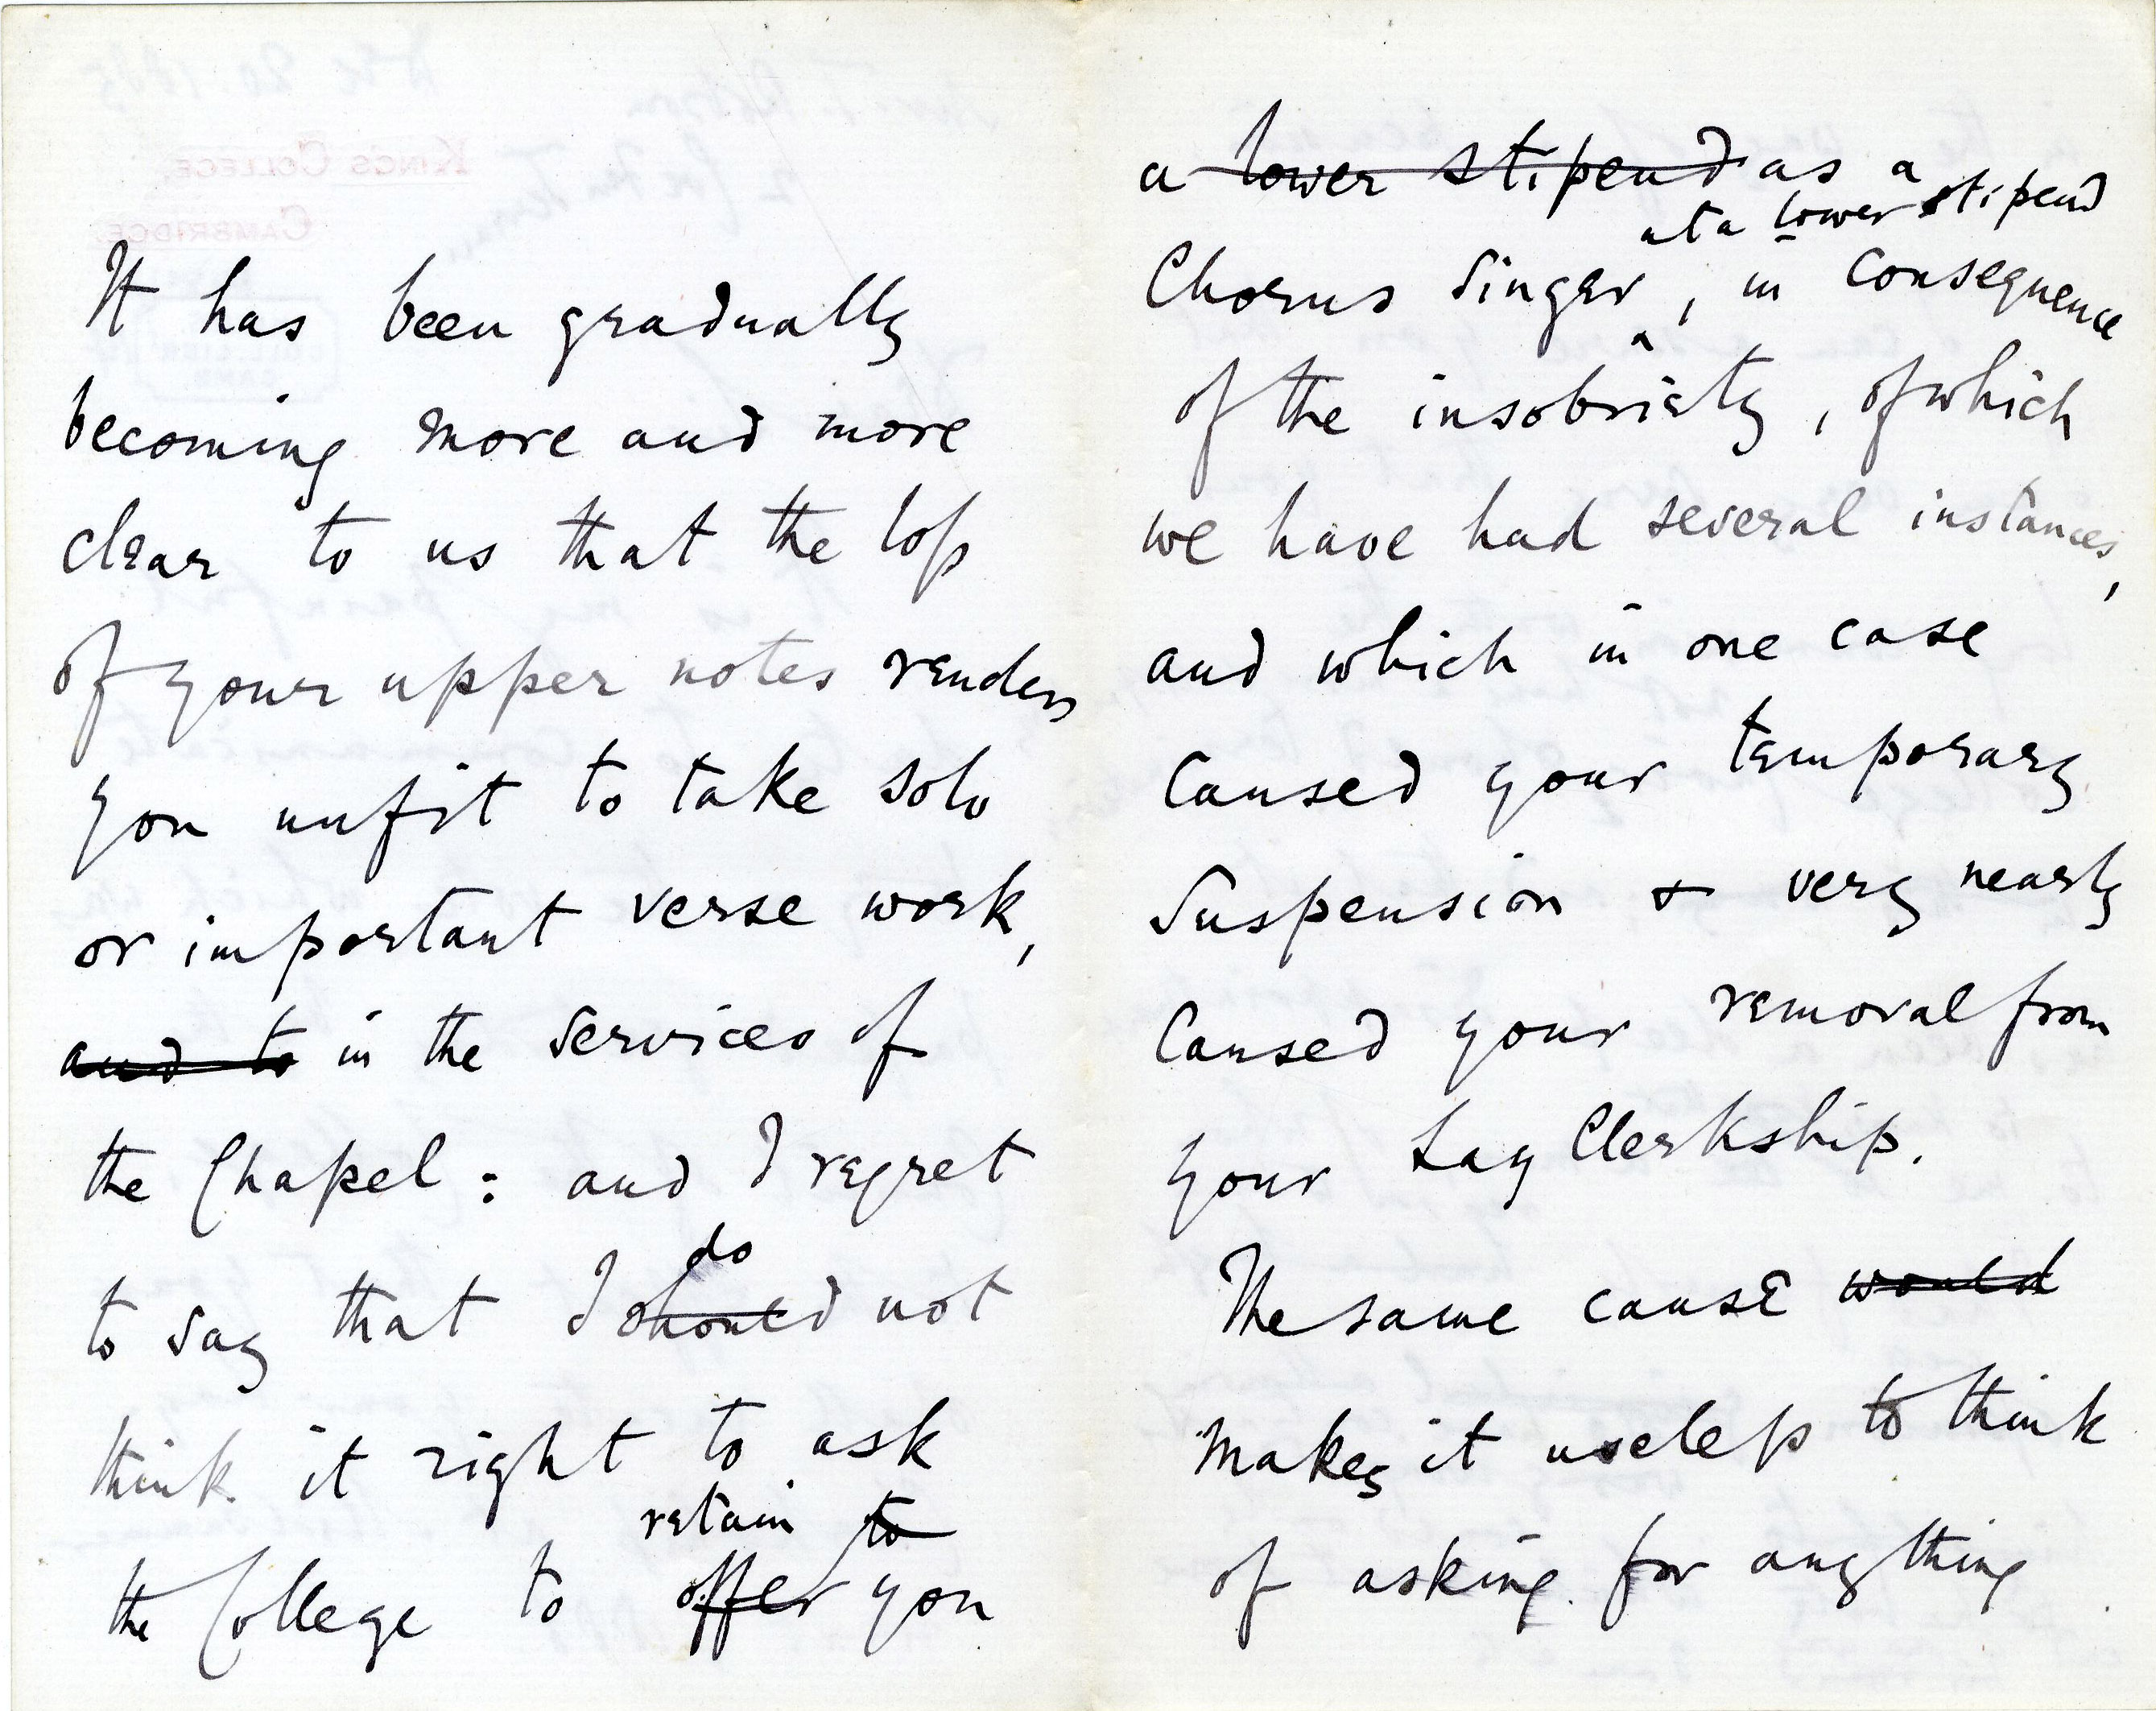 It has been gradually
becoming more and more
clear to us that the loss
of your upper notes renders
you unfit to take solo
or important verse work,
and to in the services of
the Chapel : and I regret
do
to say that I should not
think it right to ask
retain to
the College to offer you
a lower stipend as a
at a lower stipend
Chorus Singer , in consequence
of the insobriety, of which
we have had several instances,
and which in one case
caused your temporary
suspension & very nearly
caused your removal from
your Lay Clerkship.
The same cause would
makes it useless to think
of asking for anything
KING'S COLLEGE,
CAMBRIDGE.